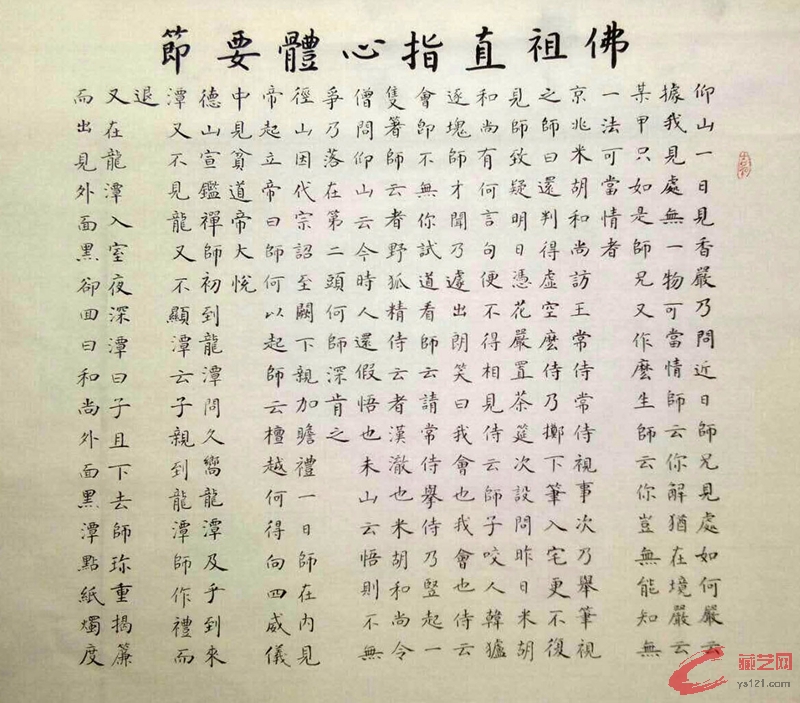 佛祖直指心體要節
仰山一日見香嚴乃問近日師兄見處如何嚴云
據我見處無一物可當情師云你解猶在境嚴云
某甲只如是師兄又作麼生師云你豈無能知無
一法可當情者
京兆米胡和尚訪王常侍常侍視事次乃舉筆視
之師曰還判得虛空麼侍乃擲下筆入宅更不復
見師致疑明日憑花嚴置茶筵次設問昨日米胡
和尚有何言句便不得相見侍云師子咬人韓獹
逐塊師才聞乃遽出朗笑曰我會也我會也侍云
會卽不無你試道看師云請常侍舉侍乃竪起一
隻箸師云者野狐精侍云者漢澈也米胡和尚令
僧問仰山云今時人還假悟也未山云悟則不無
爭乃落在第二頭何師深肯之
徑山因代宗詔至闕下親加瞻禮一日師在內見
帝起立帝曰師何以起師云檀越何得向四威儀
中見貧道帝大悅
德山宣鑑禪師初到龍潭問久嚮龍潭及乎到來
潭又不見龍又不顯潭云子親到龍潭師作禮而
退
又在龍潭入室夜深潭曰子且下去師珎重揭簾
而出見外面黑卻回曰和尚外面黑潭點紙燭度
藏艺网
ys121.com